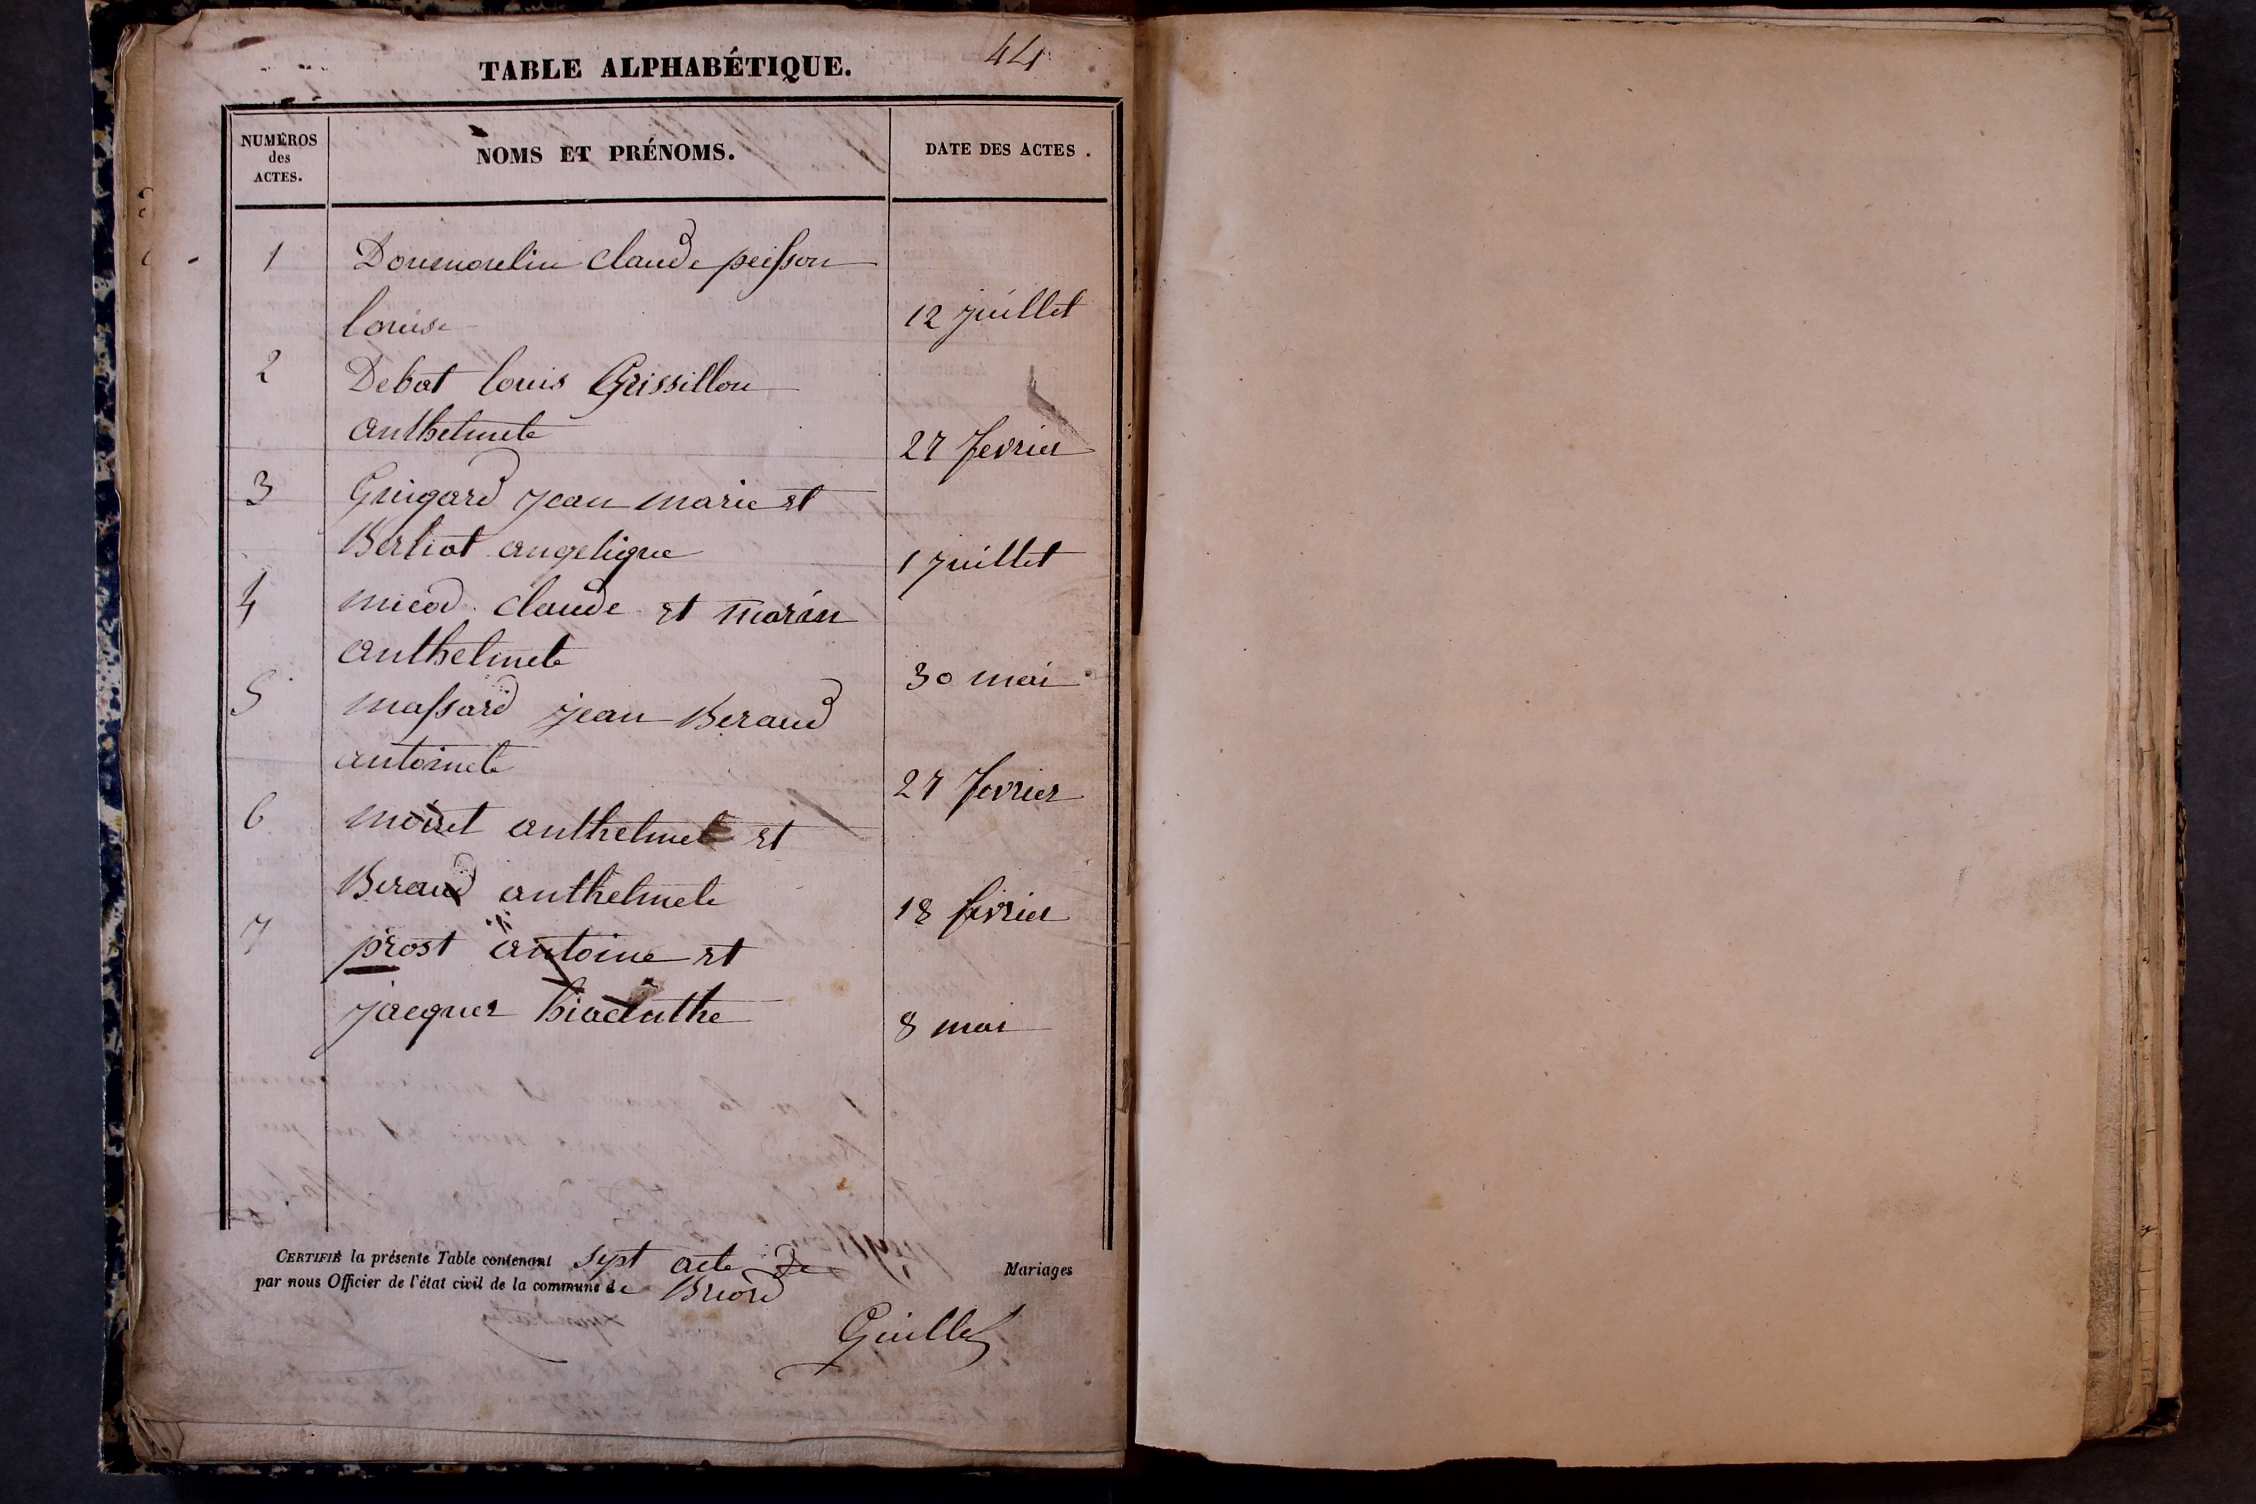 44
TABLE ALPHABÉTIQUE.
NUMÉROS
des
ACTES.
NOMS ET PRÉNOMS.
DATE DES ACTES.
1 Doumoulin claude peisson
louise 12 juillet
2 Debat louis Grissillon
anthelmete 27 fevrier
3 Guigard jean marie et
Berliot angelique 1 juillet
4 micod claude et morin
anthelmete 30 mai
5 massard jean Beraud
antoinete 27 fevrier
6 moiret anthelmet et
Beraud anthelmete 18 fevrier
7 prost antoine et
jacquer hiacinthe 8 mai
CERTIFIÉ la présente Table contenant sept acte de Mariages
par nous Officier de l'état civil de la commune de Briord
Guillet